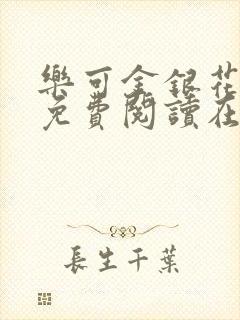 樂可金銀花
免費閱讀在
長生千葉